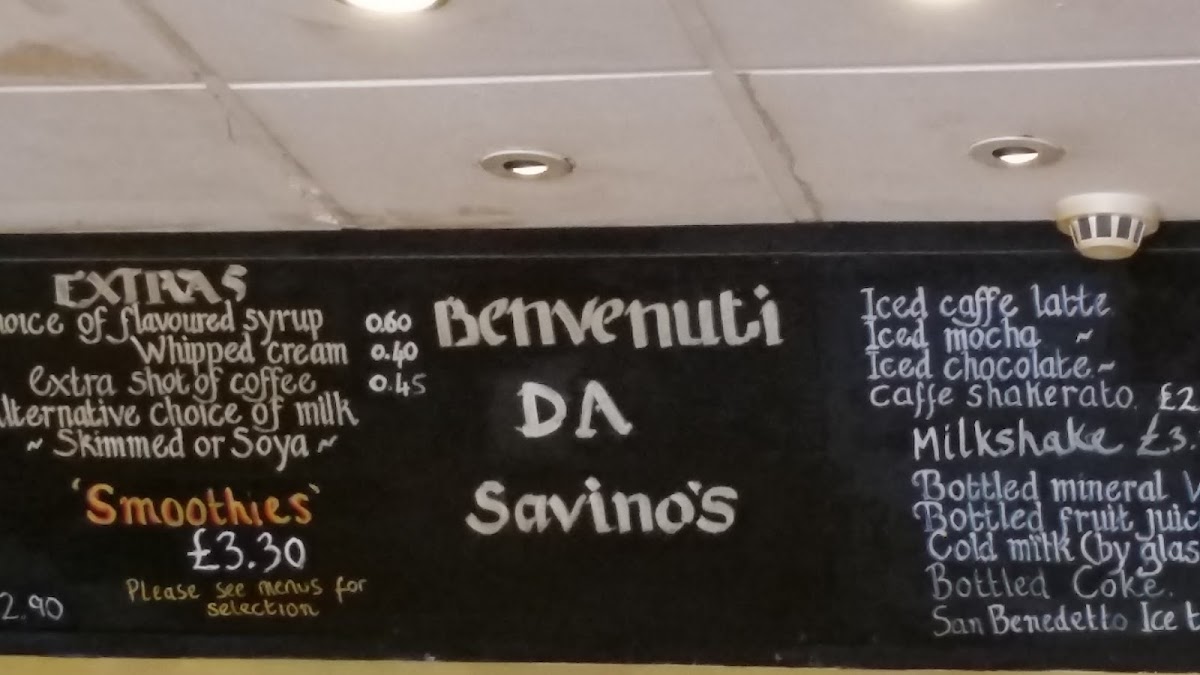 EXTRAS
hoice of flavoured syrup 0.60
Whipped cream 0.40
extra shot of coffee 0.45
lternative choice of milk
~ Skimmed or Soya ~
'Smoothies'
£3.30
Please see menus for
selection
2.90
Benvenuti
DA
Savino's
Iced caffe latte
Iced mocha ~
Iced chocolate ~
Caffe shakerato. £2
Milkshake £3.
Bottled mineral
Bottled fruit juic
Cold milk (by glas
Bottled Coke.
San Benedetto Ice t